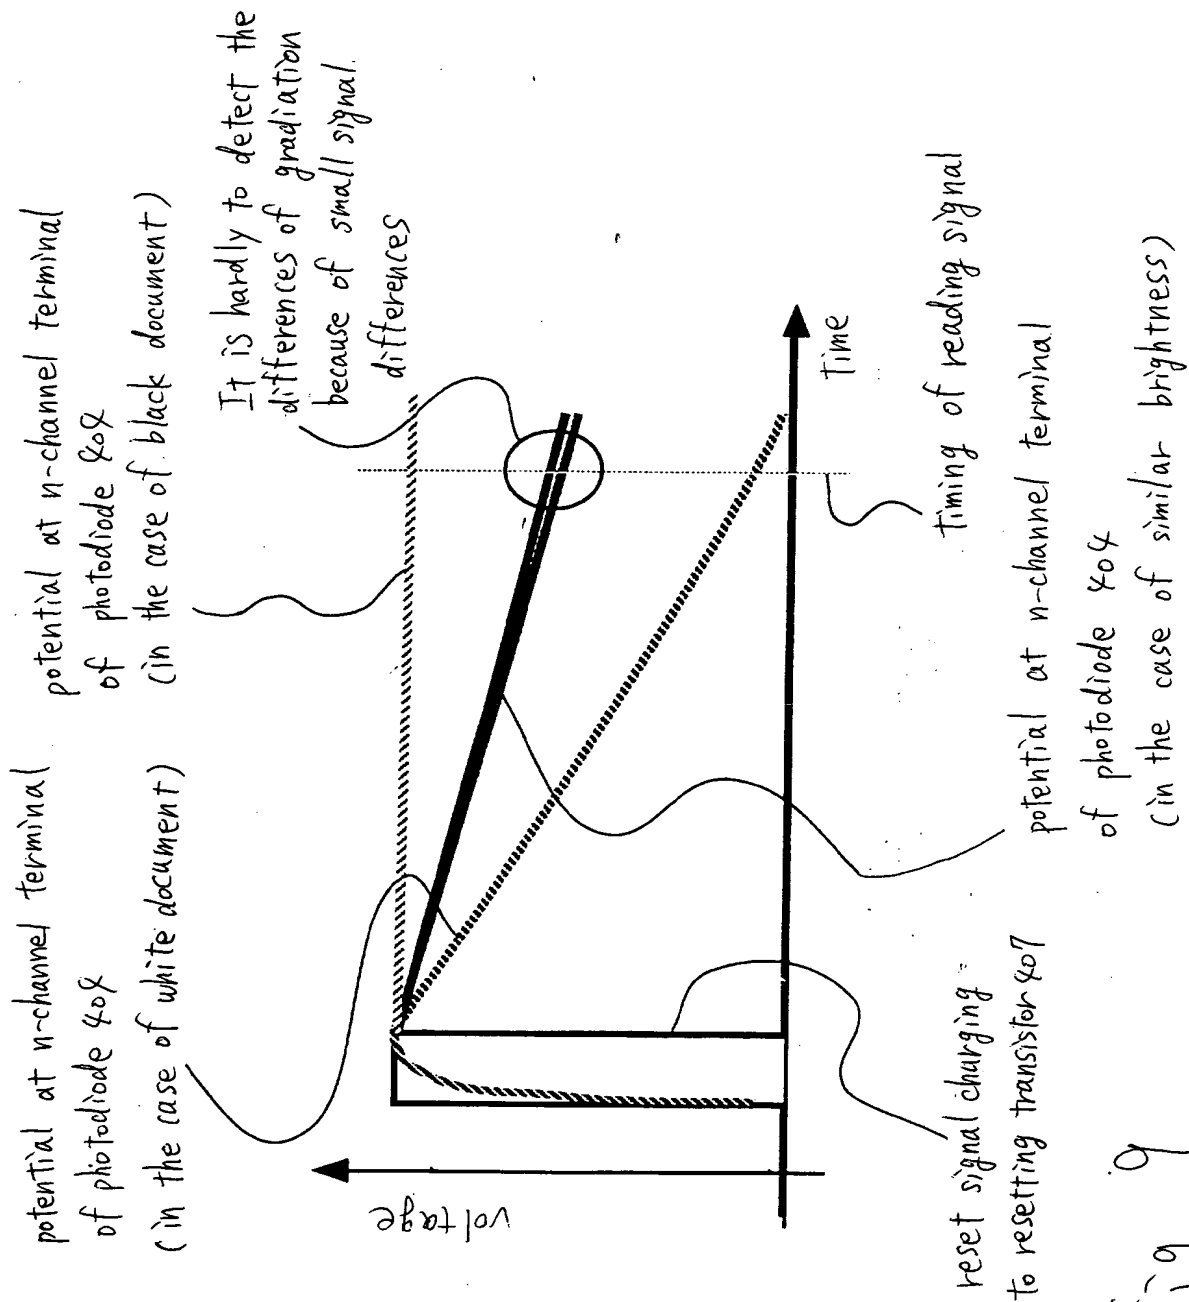 potential at n-channel terminal
of photodiode 404
(in the case of white document)
potential at n-channel terminal
of photodiode 404
(in the case of black document)
It is hardly to detect the
differences of gradiation
because of small signal.
differences
voltage
Time
timing of reading signal
potential at n-channel terminal
of photodiode 404
(in the case of similar brightness)
reset signal charging
to resetting transistor 407